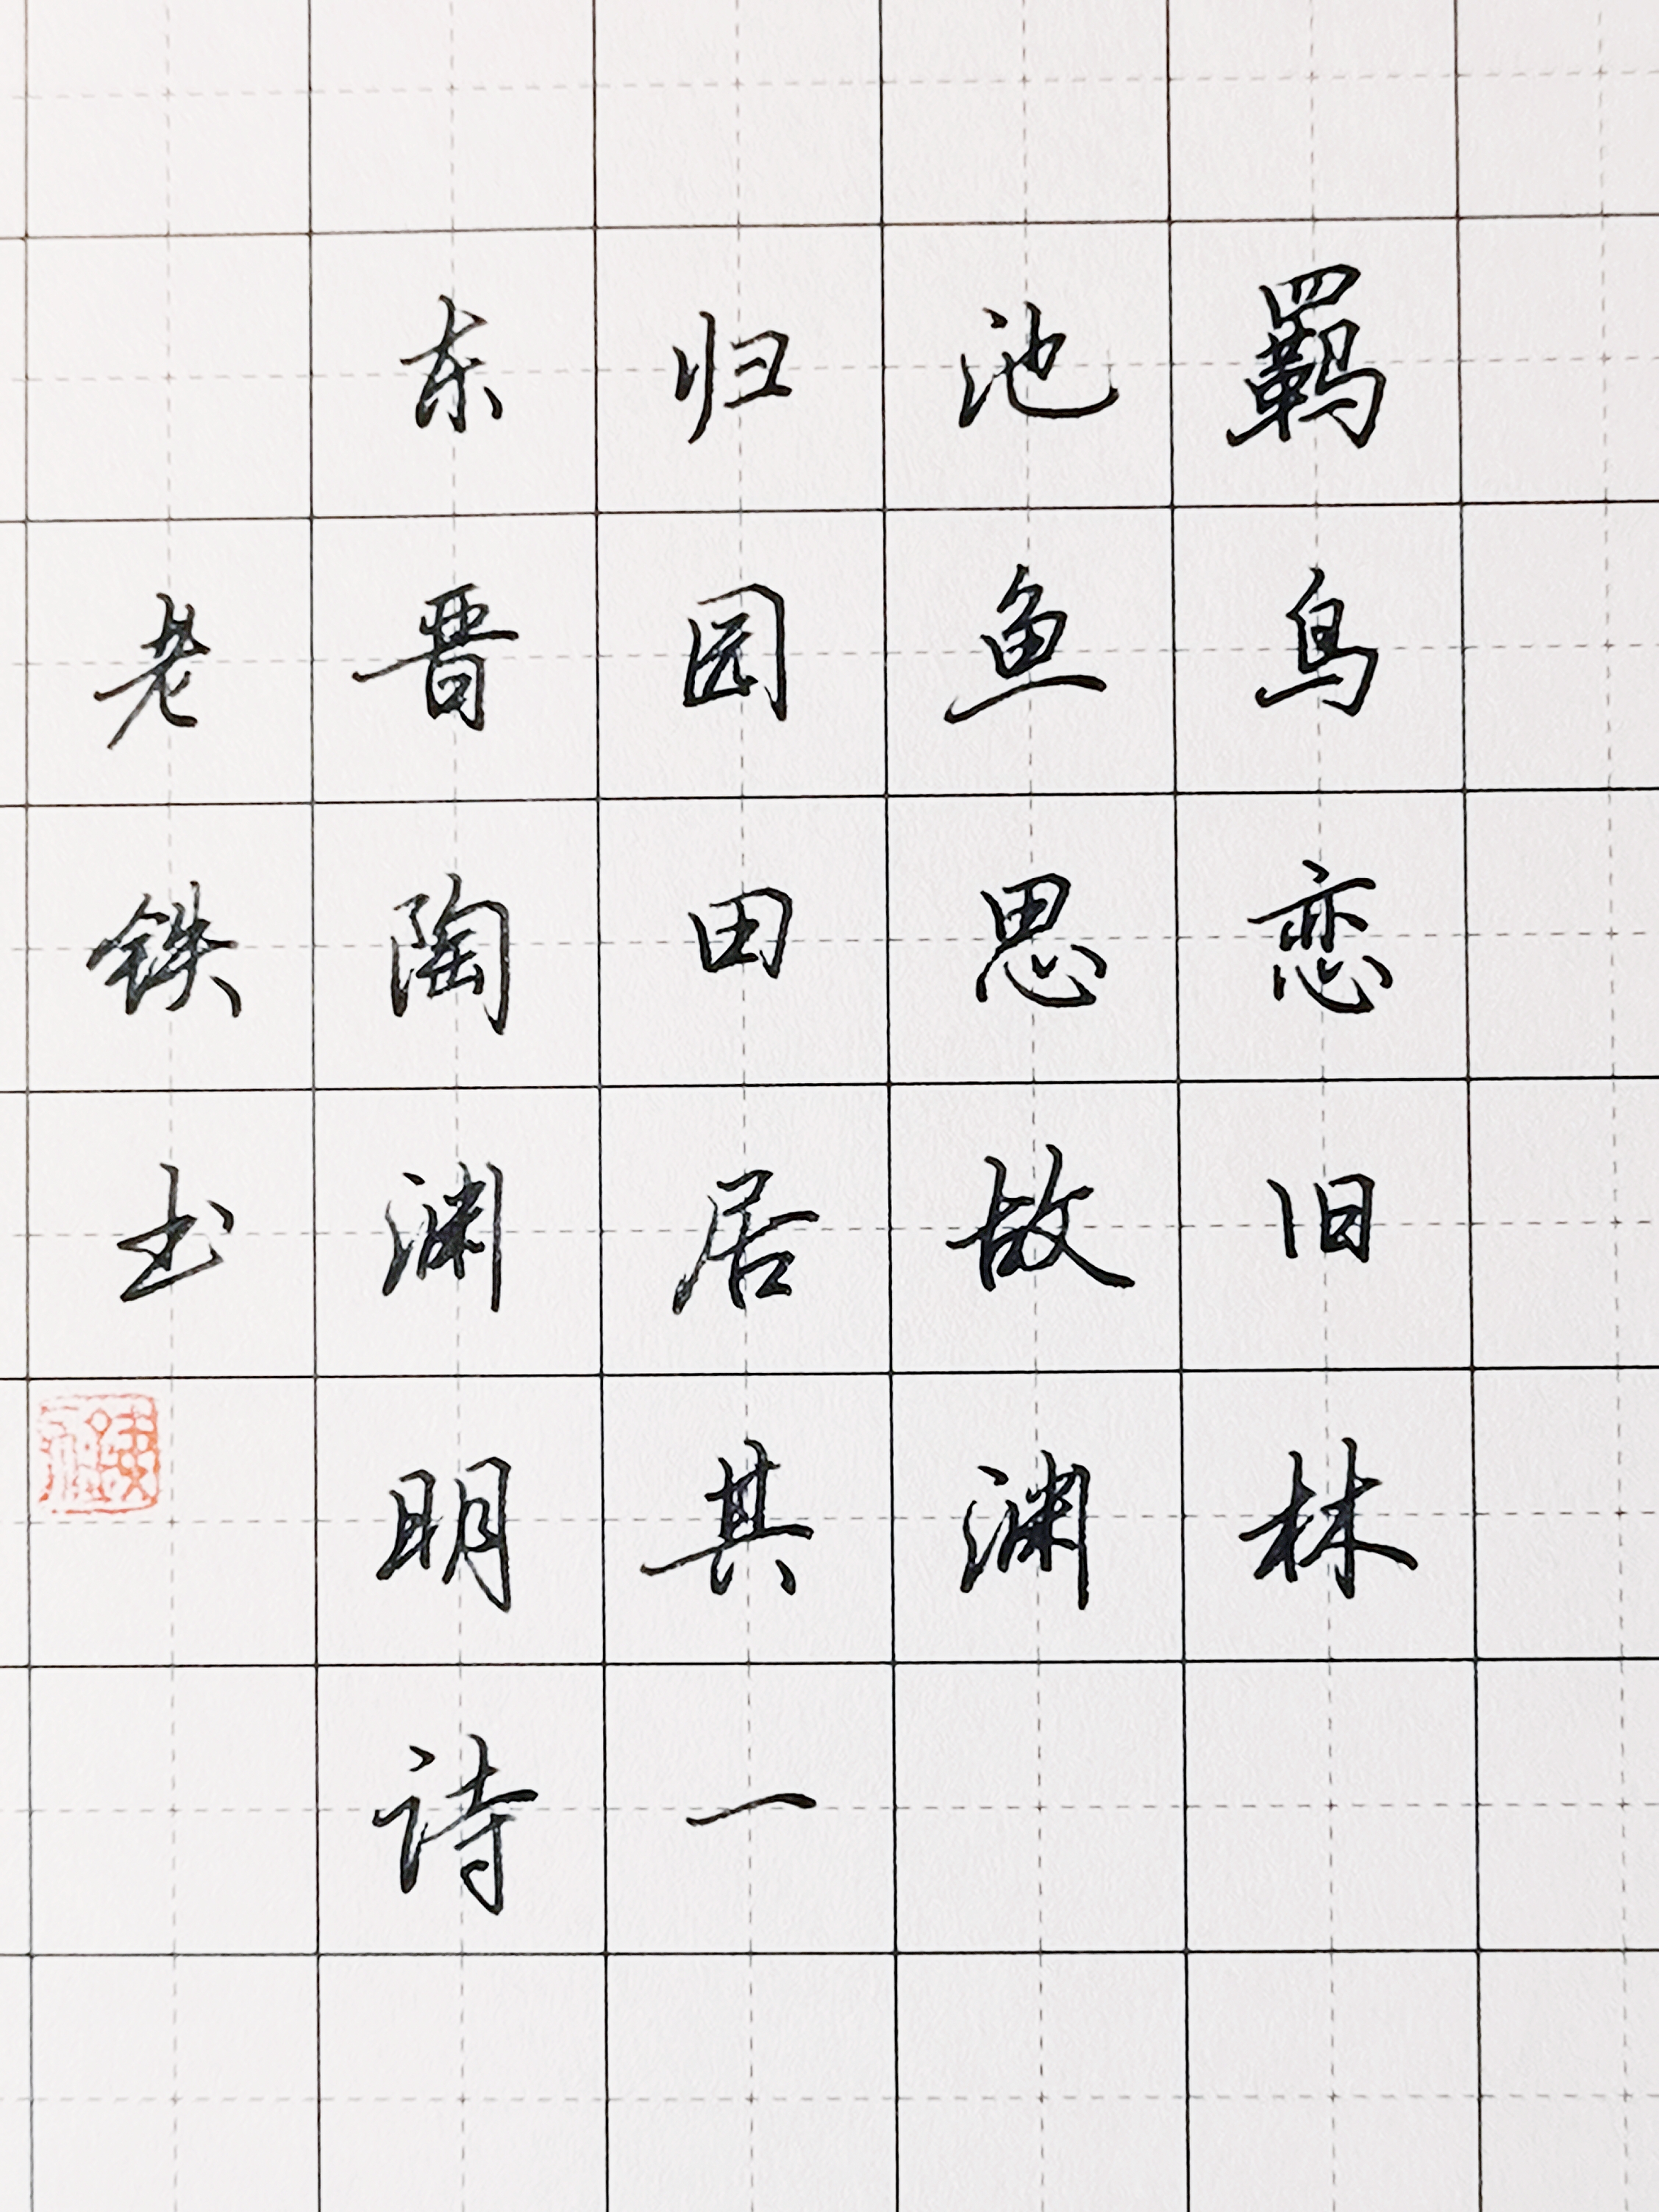 羁鸟恋旧林
池鱼思故渊
归园田居其一
东晋陶渊明诗
老铁书